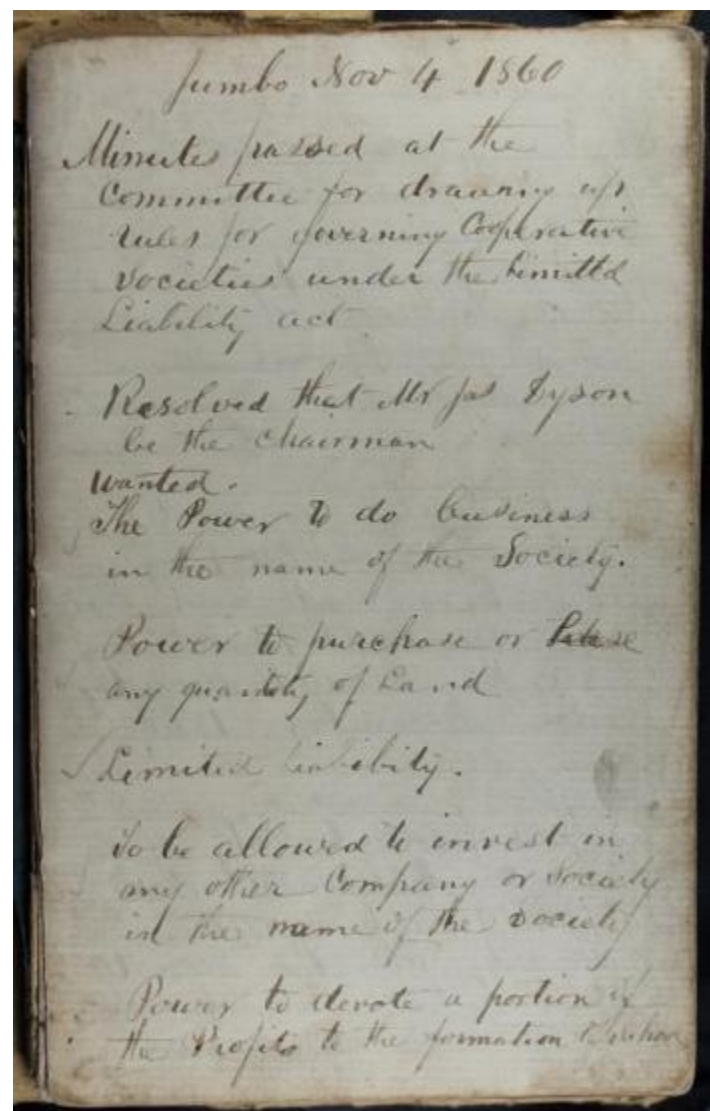 Jumbo Nov 4 1860
Minutes passed at the
Committee for drawing up
rules for governing Cooperative
Societies under the Limittd
Liability act
Resolved that Mr Jas Dyson
be the chairman
wanted.
The Power to do business
in the name of the Society.
Power to purchase or
any quantity of Land
Limited Liability.
To be allowed to invest in
any other Company or Society
in the name of the Society
Power to devote a portion of
the Profits to the formation